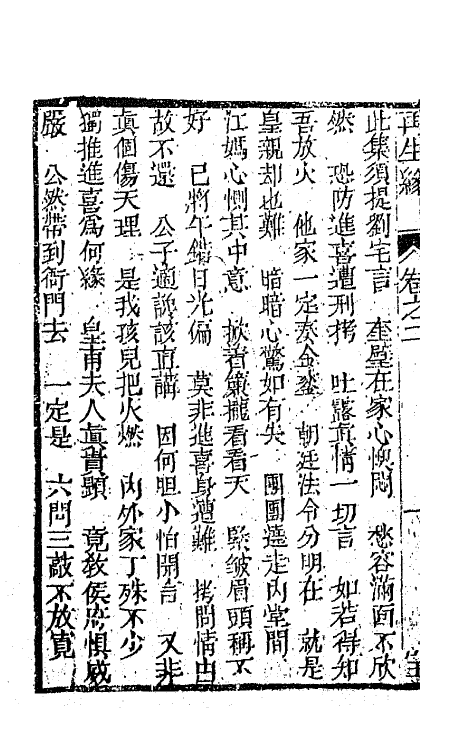 再生緣 卷之二
此集須提劉宅言 奎璧在家心懊悶 愁容滿面不欣
然 恐防進喜遭刑拷 吐露眞情一切言 如若得知
吾放火 他家一定奏金鑾 朝廷法令分明在 就是
皇親却也難 暗暗心驚如有失 團團邊走內堂間
江媽心惻其中意 掀着簾攏看看天 緊皺眉頭稱不
好 已將午錯日光偏 莫非進喜身遭難 拷問情由
故不還 公子適說該直講 因何胆小怕開言 又非
眞個傷天理 是我孩兒把火燃 內外家丁殊不少
獨推進喜爲何緣 皇甫夫人眞貴顯 竟敎侯府懼威
嚴 公然帶到衙門去 一定是 六問三敲不放寬